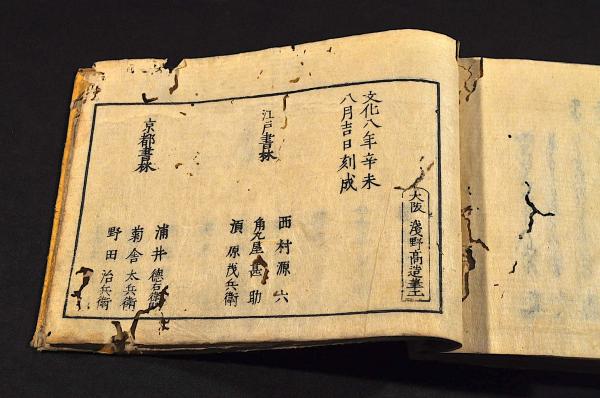 文化八年辛未
八月吉日刻成
大阪 淺野高造著
江戸書林
西村源六
角丸屋甚助
須原茂兵衛
京都書林
浦井徳右衛門
菊舎太兵衛
野田治兵衛